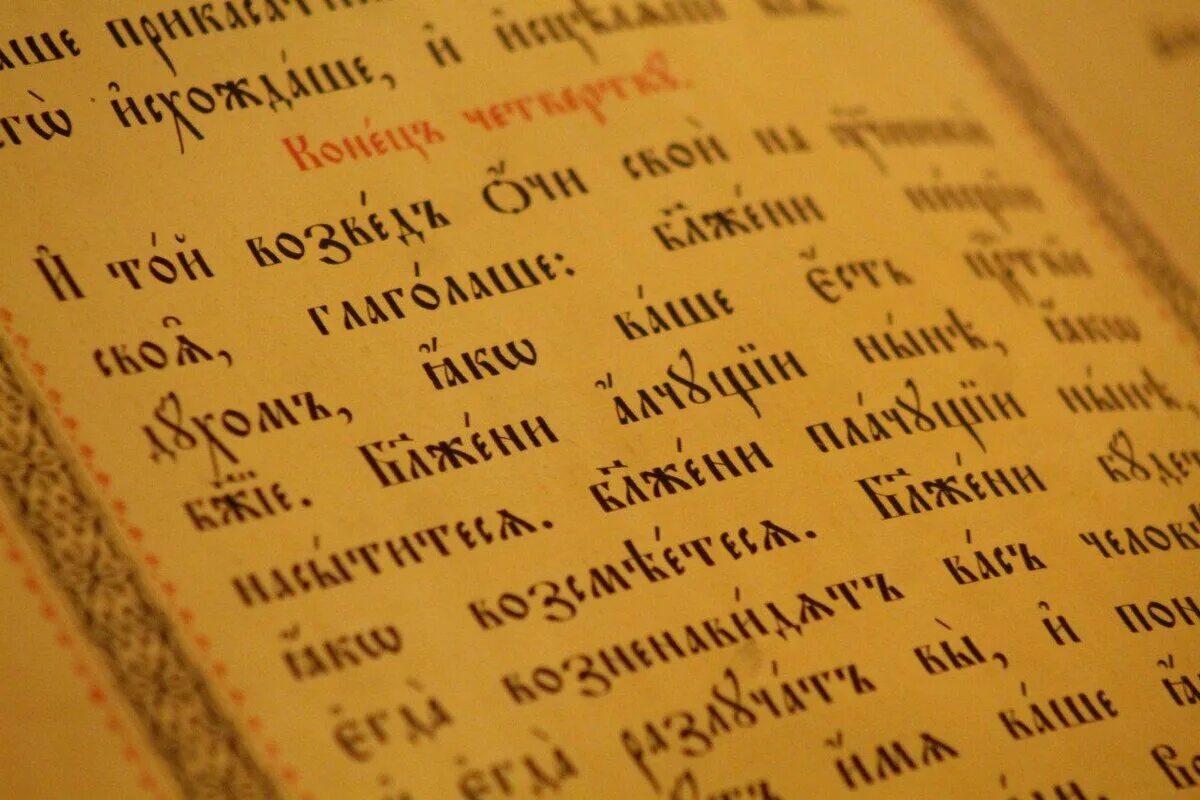 аше прикаса́ти
гѡ̀ и҆схожда́ше, и҆ и҆сцѣлѧ́ше
Коне́цъ четверткꙋ̀.
И҆ то́й возве́дъ ѻ҆́чи своѝ на
своѧ̑, глаго́лаше: бл҃же́ни ни́щїи
дꙋ́хомъ, ꙗ҆́кѡ ва́ше є҆́сть црⷭ҇твїе
бж҃їе. Бл҃же́ни а҆́лчꙋщїи ны́нѣ, ꙗ҆́кѡ
насы́титесѧ. бл҃же́ни пла́чꙋщїи ны́нѣ,
ꙗ҆́кѡ возсмѣе́тесѧ. Бл҃же́ни бꙋ́дет
є҆гда̀ возненави́дѧтъ ва́съ человѣ
и҆ є҆гда̀ разлꙋча́тъ вы̀, и҆ пон
и҆́мѧ ва́ше